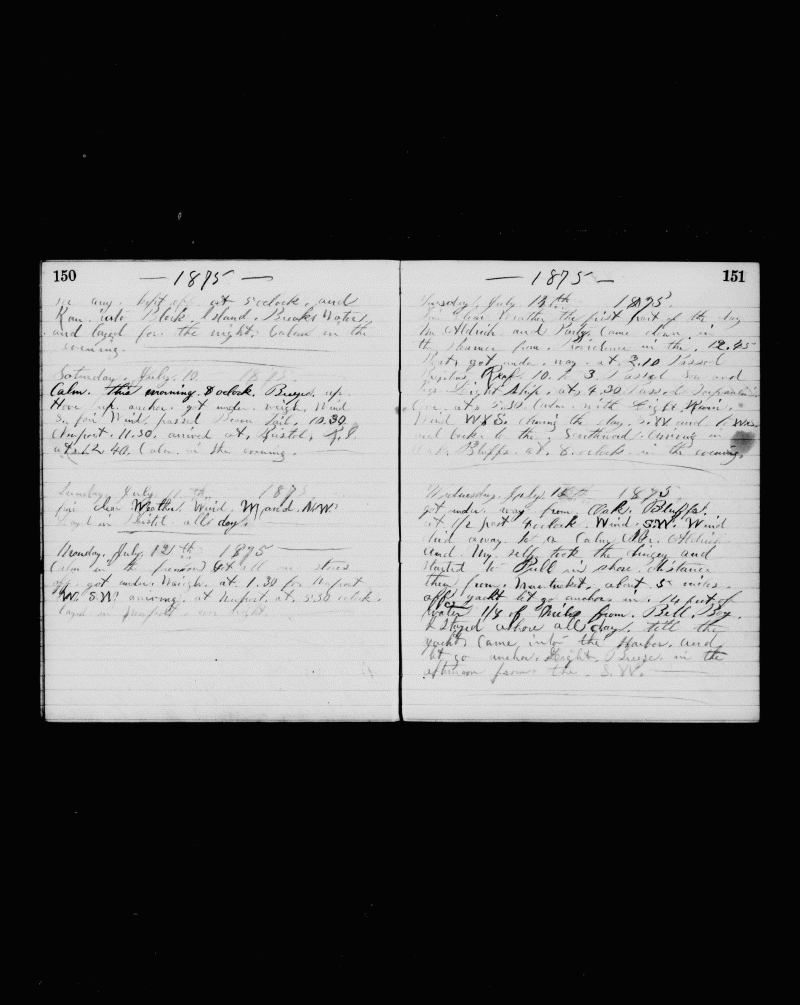 150
— 1875 —
any. off at 5 oclock. and
Ran into Block Island. Breake Water,
and layed for the night. Calm in the
evening.
Saturday. July. 10 1875
Calm. this morning. 8 oclock. Breeze up.
Hove up. anchor. got under. weigh. Wind
S. fair Wind. passed 10.30
Newport. 11.30. arrived at. Bristol. R.I.
at 12 40. Calm. in the evening.
Sunday July 11 th. 1875
fair clear Weather. Wind. W and. N.W.
Layed in Bristol. all day.
Monday. July. 12 th 1875
Calm in the forenoon Got all our stores
off. got under. Waigh. at 1.30 for Newport
W. S.W. arriving. at Newport. at. 5.30 oclock.
layed in Newport over night.
— 1875 —
151
Tuesday. July 13 th 1875.
clear Weather the first part of the day
Mr Aldrich and Party. Came down in
the steamer from. Providence in the. 12.45
Boat. got under. way. at 3.10 Passed
Reef. 10. to 3. Passed
Light Ship. at. 4.30 Passed
at. 5.30. Calm. with Light. Rain.
Wind W & S. during the day. and
and back to the. Southward. Arriving in
Oak. Bluffs. at. oclock. in the evening.
Wednesday. July. 14 th 1875
got under way. from Oak. Bluffs.
at 1/2 past oclock. Wind. S.W. Wind
died away. to a Calm. Mr. Aldrich
and. My self took the dingey and
started to Pull in shore. distance
then from. Nantucket. about 5 miles.
yacht let go anchor. in. 14 feet of
water 1/8 of Mile from. Bell. Boy.
& Stayed ashore all day. till the
yacht. Came into the Harbor. and
let go anchor. Light. Breese. in the
afternoon from the. S.W.